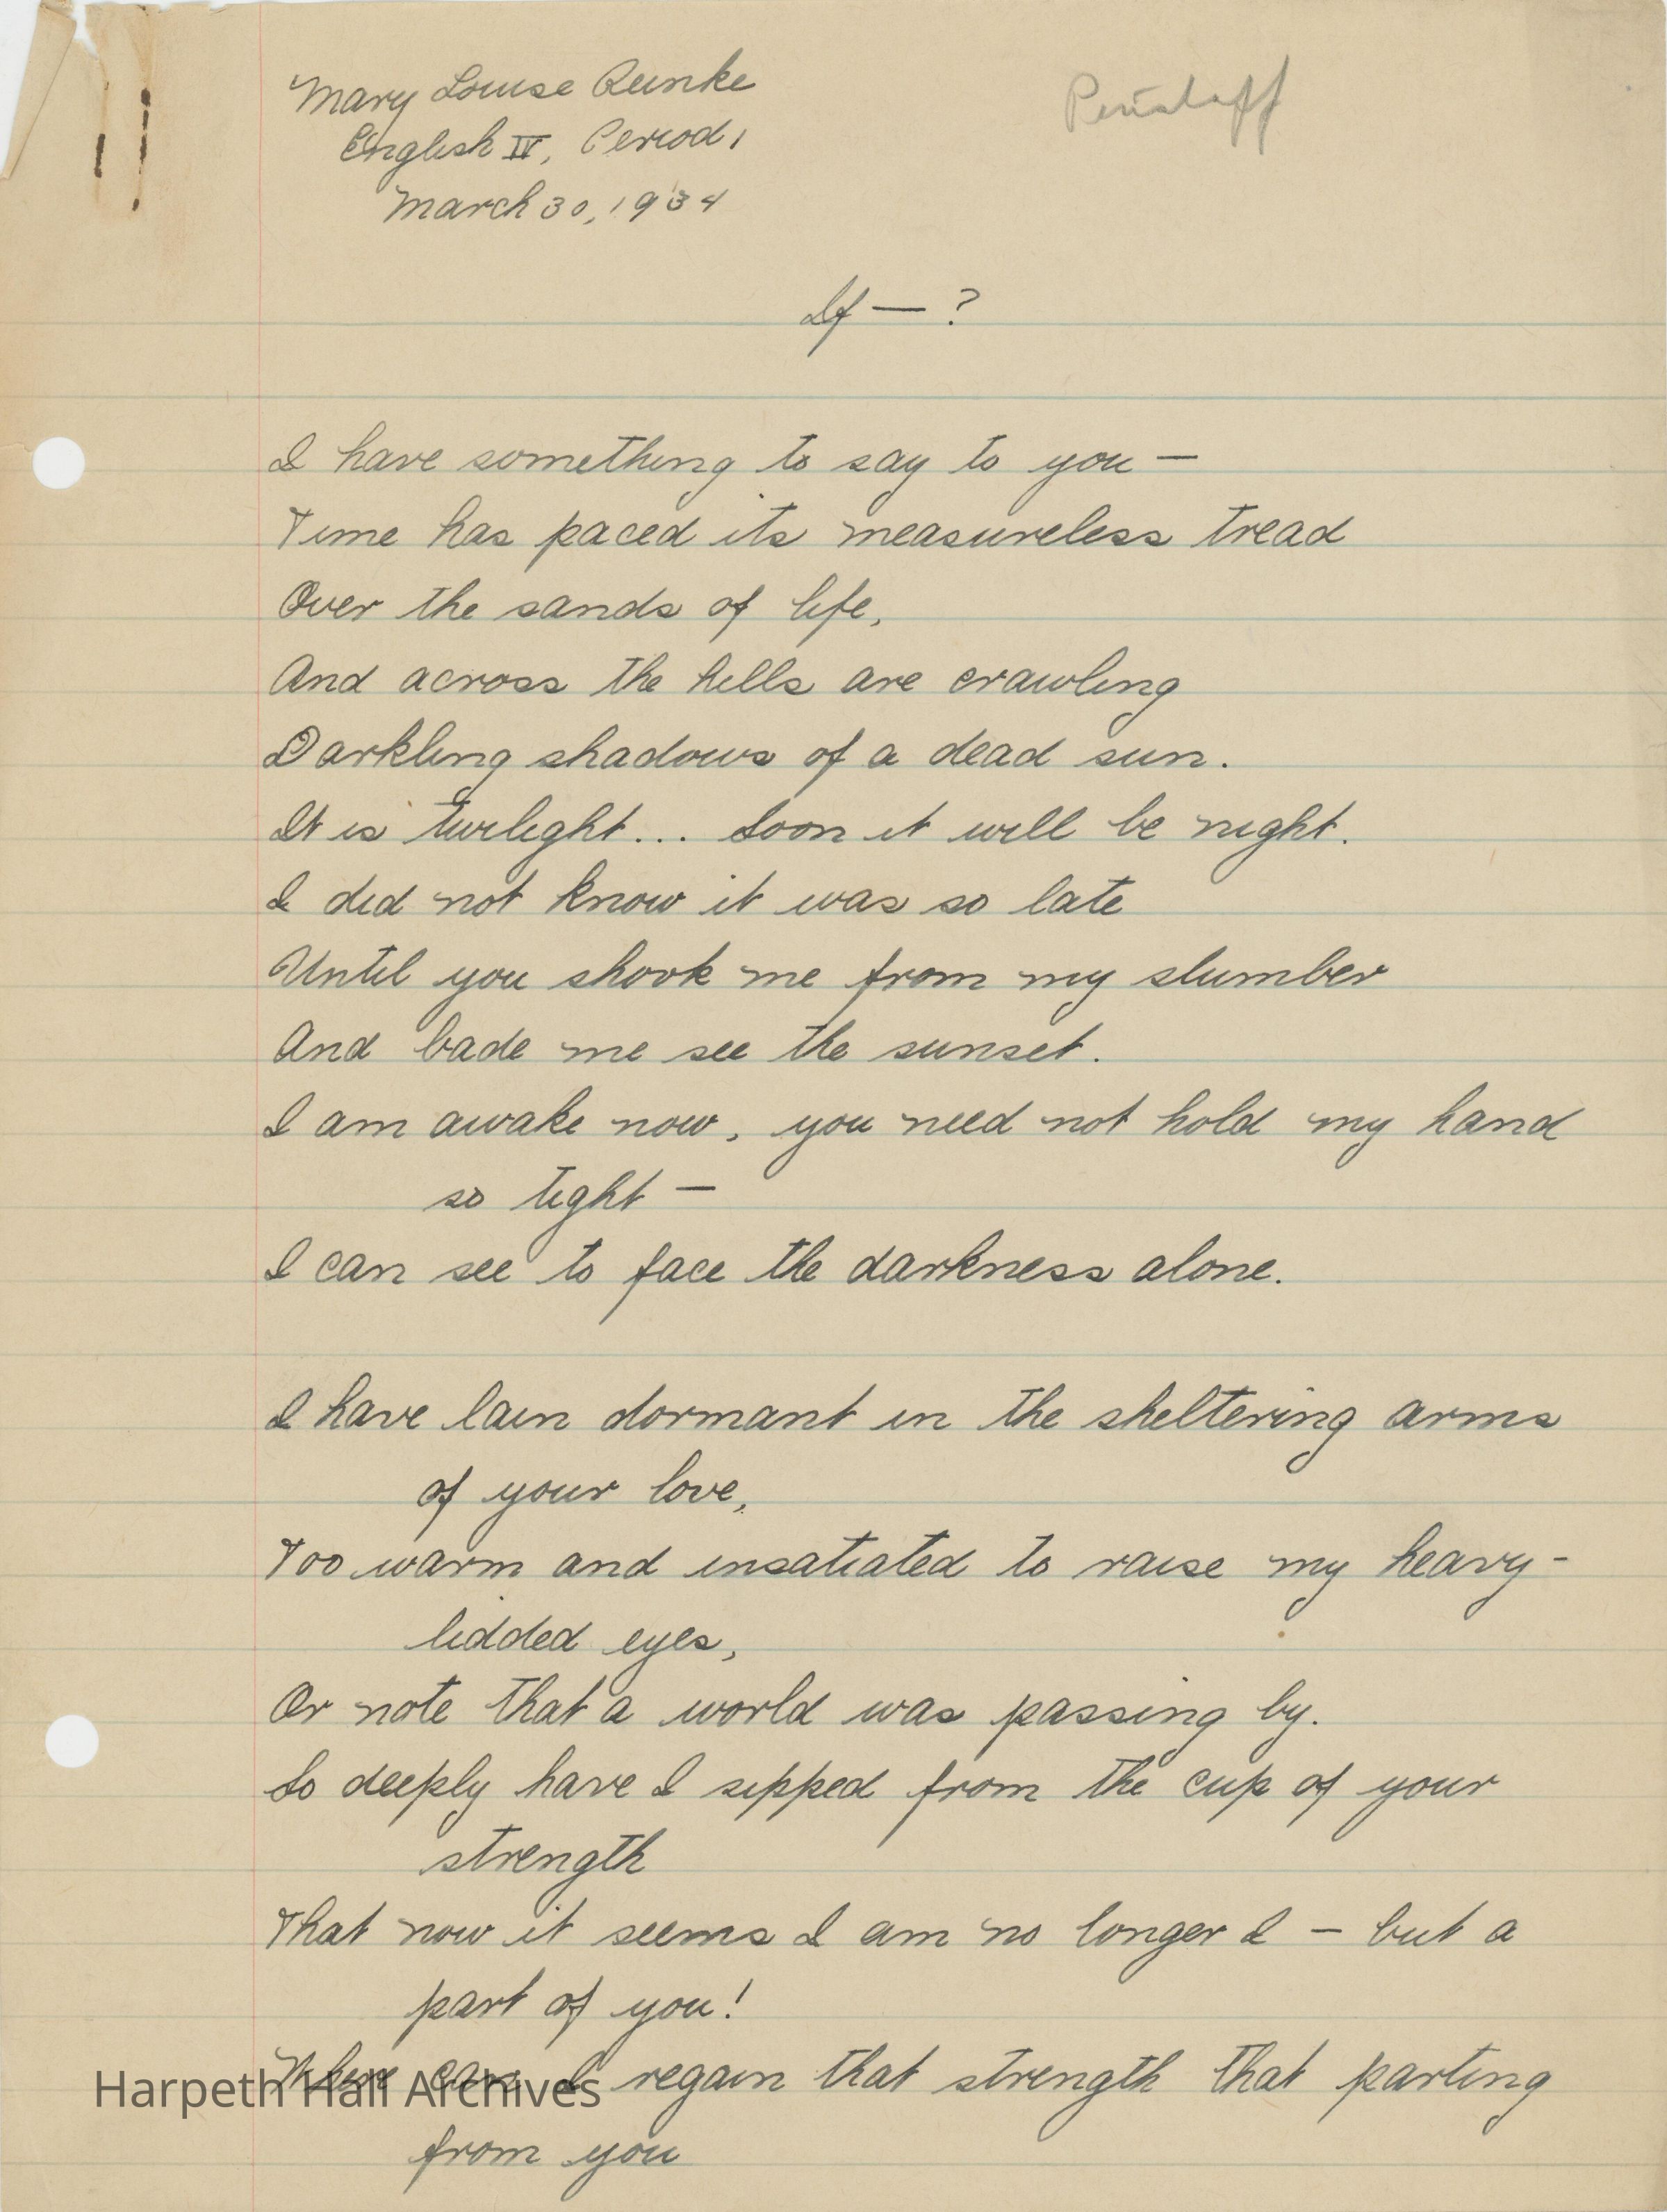 Mary Louise Reinke
English IV, Period 1
March 30, 1934
If — ?
I have something to say to you —
Time has paced its measureless tread
Over the sands of life,
And across the hills are crawling
Darkling shadows of a dead sun.
It is twilight... Soon it will be night.
I did not know it was so late
Until you shook me from my slumber
And bade me see the sunset.
I am awake now, you need not hold my hand
so tight —
I can see to face the darkness alone.
I have lain dormant in the sheltering arms
of your love,
Too warm and insatiated to raise my heavy-
lidded eyes,
Or note that a world was passing by.
So deeply have I sipped from the cup of your
strength
That now it seems I am no longer I — but a
part of you!
Where can I regain that strength that parting
from you
Harpeth Hall Archives